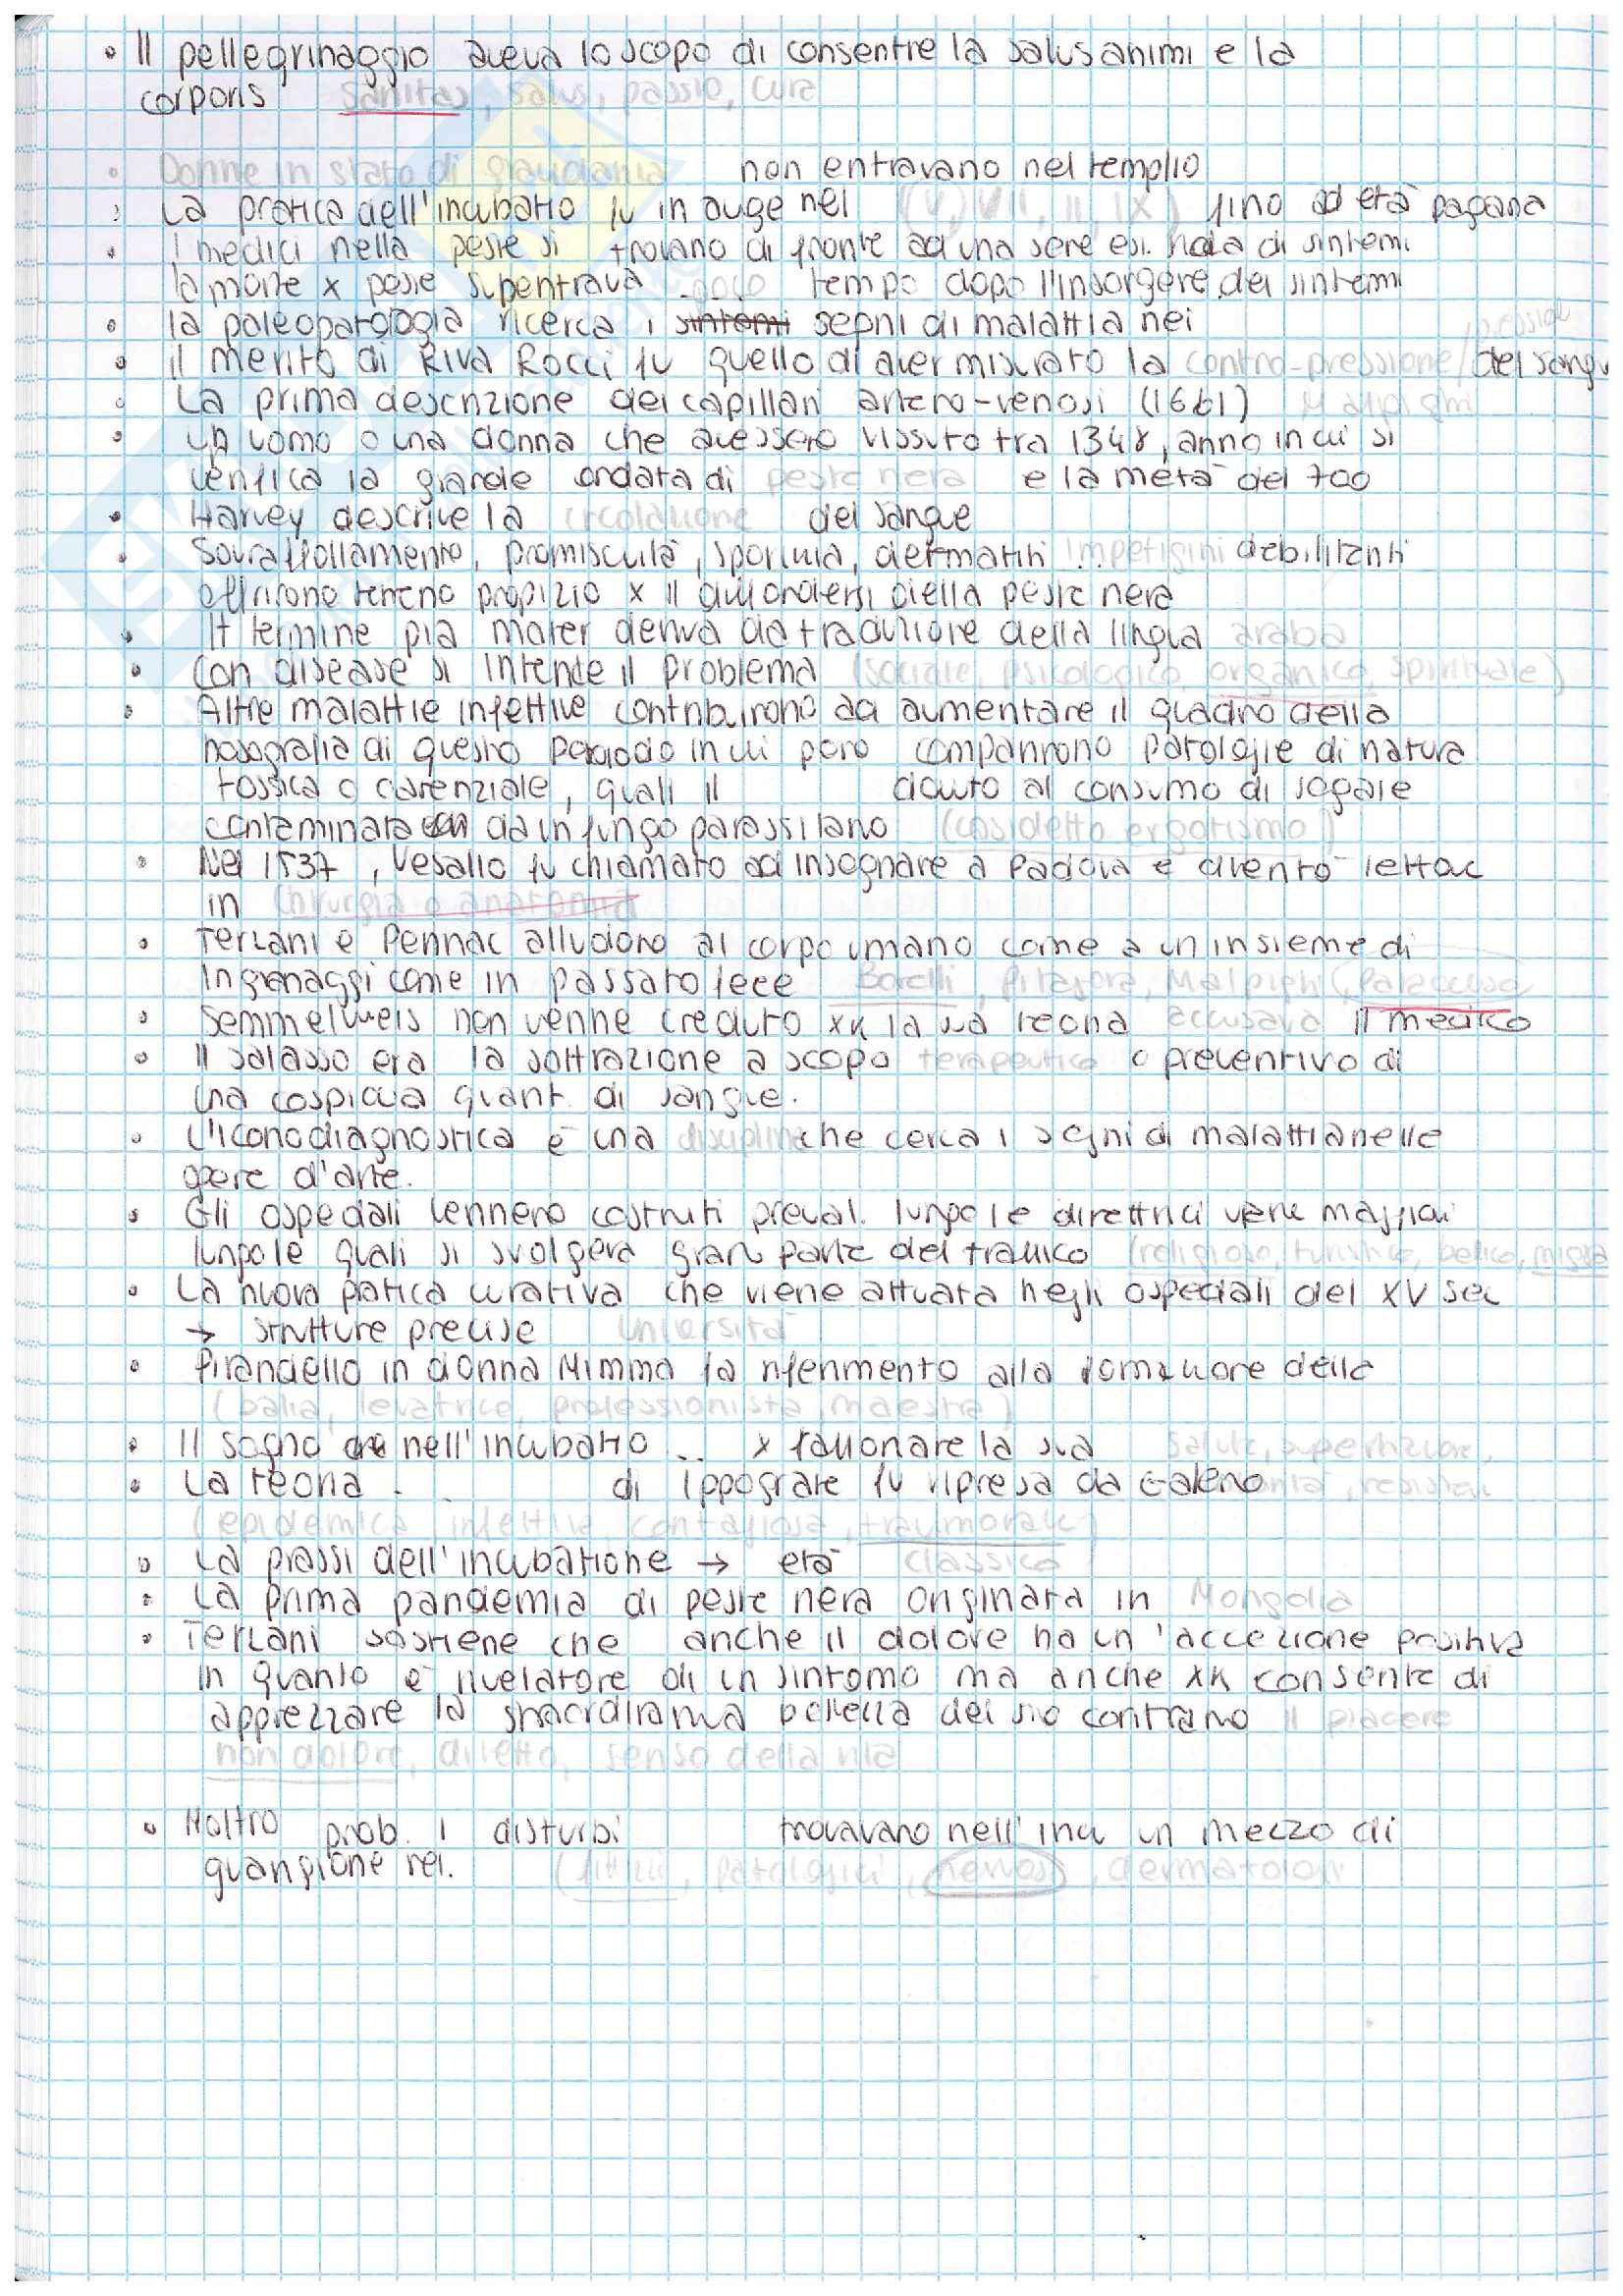 • Il pellegrinaggio aveva lo scopo di consentire la salus animi e la
corporis sanitas, salus, passio, cura
• Donne in stato di gravidanza non entravano nel templio
• La pratica dell'incubatio fu in auge nel (V, VII, II, IX) fino ad età pagana
• I medici nella peste si trovano di fronte ad una serie di sintomi
la morte x peste supentrava poco tempo dopo l'insorgere dei sintomi
• la paleopatologia ricerca i sintomi segni di malattia nei
• il merito di Riva Rocci fu quello di aver misurato la contro-pressione / pressione del sangu
• La prima descrizione dei capillari artero-venosi (1661) Malpighi
• un uomo o una donna che avessero vissuto tra 1348, anno in cui si
verifica la grande ondata di peste nera e la metà del 700
• Harvey descrive la circolazione del sangue
• Sovraffollamento, promiscuità, sporcizia, dermatiti impetigini debilitanti
offrirono terreno propizio x il diffondersi della peste nera
• Il termine pia mater deriva da traduzione della lingua araba
• Con disease si intende il problema (sociale, psicologico, organico, spirituale)
• Altre malattie infettive contribuirono ad aumentare il quadro della
nosografia di questo periodo in cui però comparirono patologie di natura
tossica o carenziale, quali il dovuto al consumo di segale
contaminata da un fungo parassitario (cosidetto ergotismo)
• Nel 1537, Vesalio fu chiamato ad insegnare a Padova e diventò lettor
in chirurgia o anatomia
• Terzani e Pennac alludono al corpo umano come a un insieme di
ingranaggi come in passato fece Borelli, Pitagora, Malpighi, Paracelso
• Semmelweis non venne creduto xk la sua teoria accusava il medico
• Il salasso era la sottrazione a scopo terapeutico o preventivo di
una cospicua quant. di sangue.
• L'iconodiagnostica è una disciplina che cerca i segni di malattia nelle
opere d'arte.
• Gli ospedali vennero costruiti preval. lungo le direttrici viarie maggiori
lungo le quali si svolgeva gran parte del traffico (religioso, turistico, bellico, migra
• La nuova pratica curativa che viene attuata negli ospedali del XV sec
→ strutture precise università
• Pirandello in donna Mimma fa riferimento alla formazione della
(balia, levatrice, professionista, maestra)
• Il sogno nell'incubatio .. x fazionare la sua salute, superstizione,
• La teoria . . di Ippograte fu ripresa da Galeno
(epidemica, infettiva, contagiosa, traumorale)
• La prassi dell'incubatione → età classica
• La prima pandemia di peste nera originata in Mongolia
• Terzani sostiene che anche il dolore ha un'accezione positiva
in quanto è rivelatore di un sintomo ma anche xk consente di
apprezzare la straordinaria bellezza del suo contrario il piacere
non dolore, diletto, senso della vita
• Moltro prob. i disturbi trovavano nell'incu un mezzo di
guarigione rei. (fittizi, patologici, nervosi, dermatologi